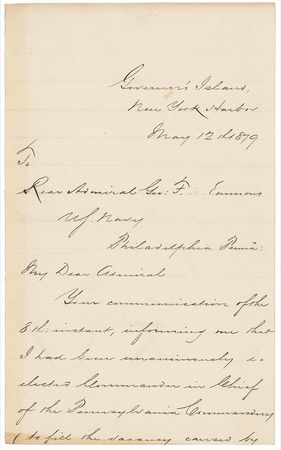 Governor's Island,
New York Harbor
May 12th 1879
To
Rear Admiral Geo: F. Emmons
U.S. Navy
Philadelphia Penna:
My Dear Admiral
Your communication of the
8th: instant, informing me that
I had been unanimously
elected Commander in Chief
of the Pennsylvania Commandery
to fill the vacancy caused by